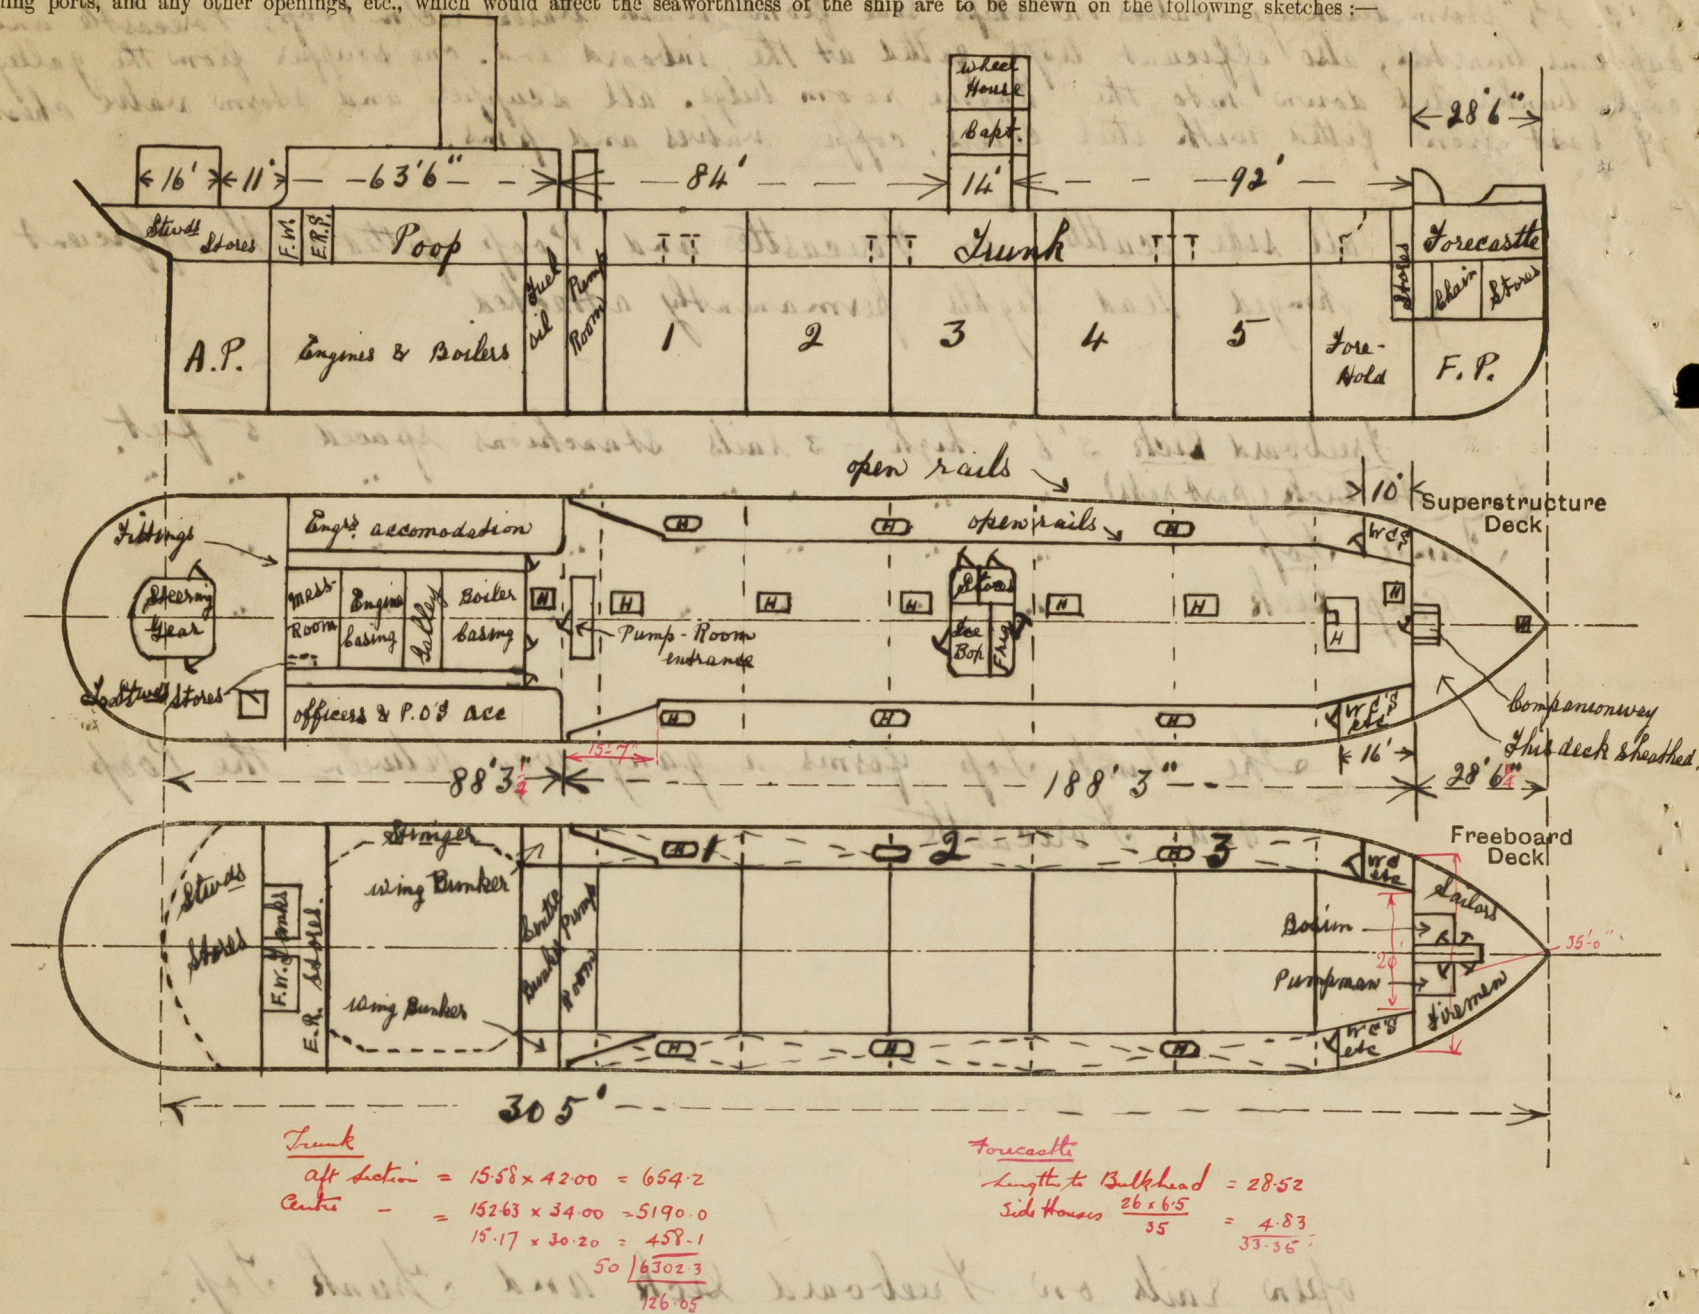 ling ports, and any other openings, etc., which would affect the seaworthiness of the ship are to be shewn on the following sketches :—
Wheel House
Capt.
28' 6"
16' 11' 63' 6" 84' 14' 92'
Stwds Stores
F.W.
E.R.S.
Poop
Fuel oil
Pump Room
Trunk
Stores
Forecastle
Chain
Stores
A.P.
Engines & Boilers
1 2 3 4 5
Fore-Hold
F. P.
open rails
10'
Superstructure Deck
Fittings
Engrs. accomodation
H H H
open rails
W C's
Steering Gear
Mess-Room
Engine Casing
Galley
Boiler Casing
H
Pump-Room entrance
H H H H H
Stores
Ice Box
Frig
H
H
H
To Stwds Stores
officers & P.O's acc
H H H
W C'S etc
Companionway
This deck sheathed.
15'-7"
16'
88' 3 1/2"
188' 3"
28' 6 1/4"
Freeboard Deck
Stringer
H 1 2 H 3
W C etc
Stwds Stores
wing Bunker
F.W. Tanks
E.R. Stores.
Centre Bunker
Pump Room
Sailors
Bosun
Pumpman
26'
35'-0"
Firemen
wing Bunker
H H H
W C'S etc
305'
Trunk
aft section = 15.58 x 42.00 = 654.2
Centre - = 152.63 x 34.00 = 5190.0
15.17 x 30.20 = 458.1
50 6302.3
126.05
Forecastle
Length to Bulkhead = 28.52
Side Houses 26 x 6.5 / 35 = 4.83
33.35